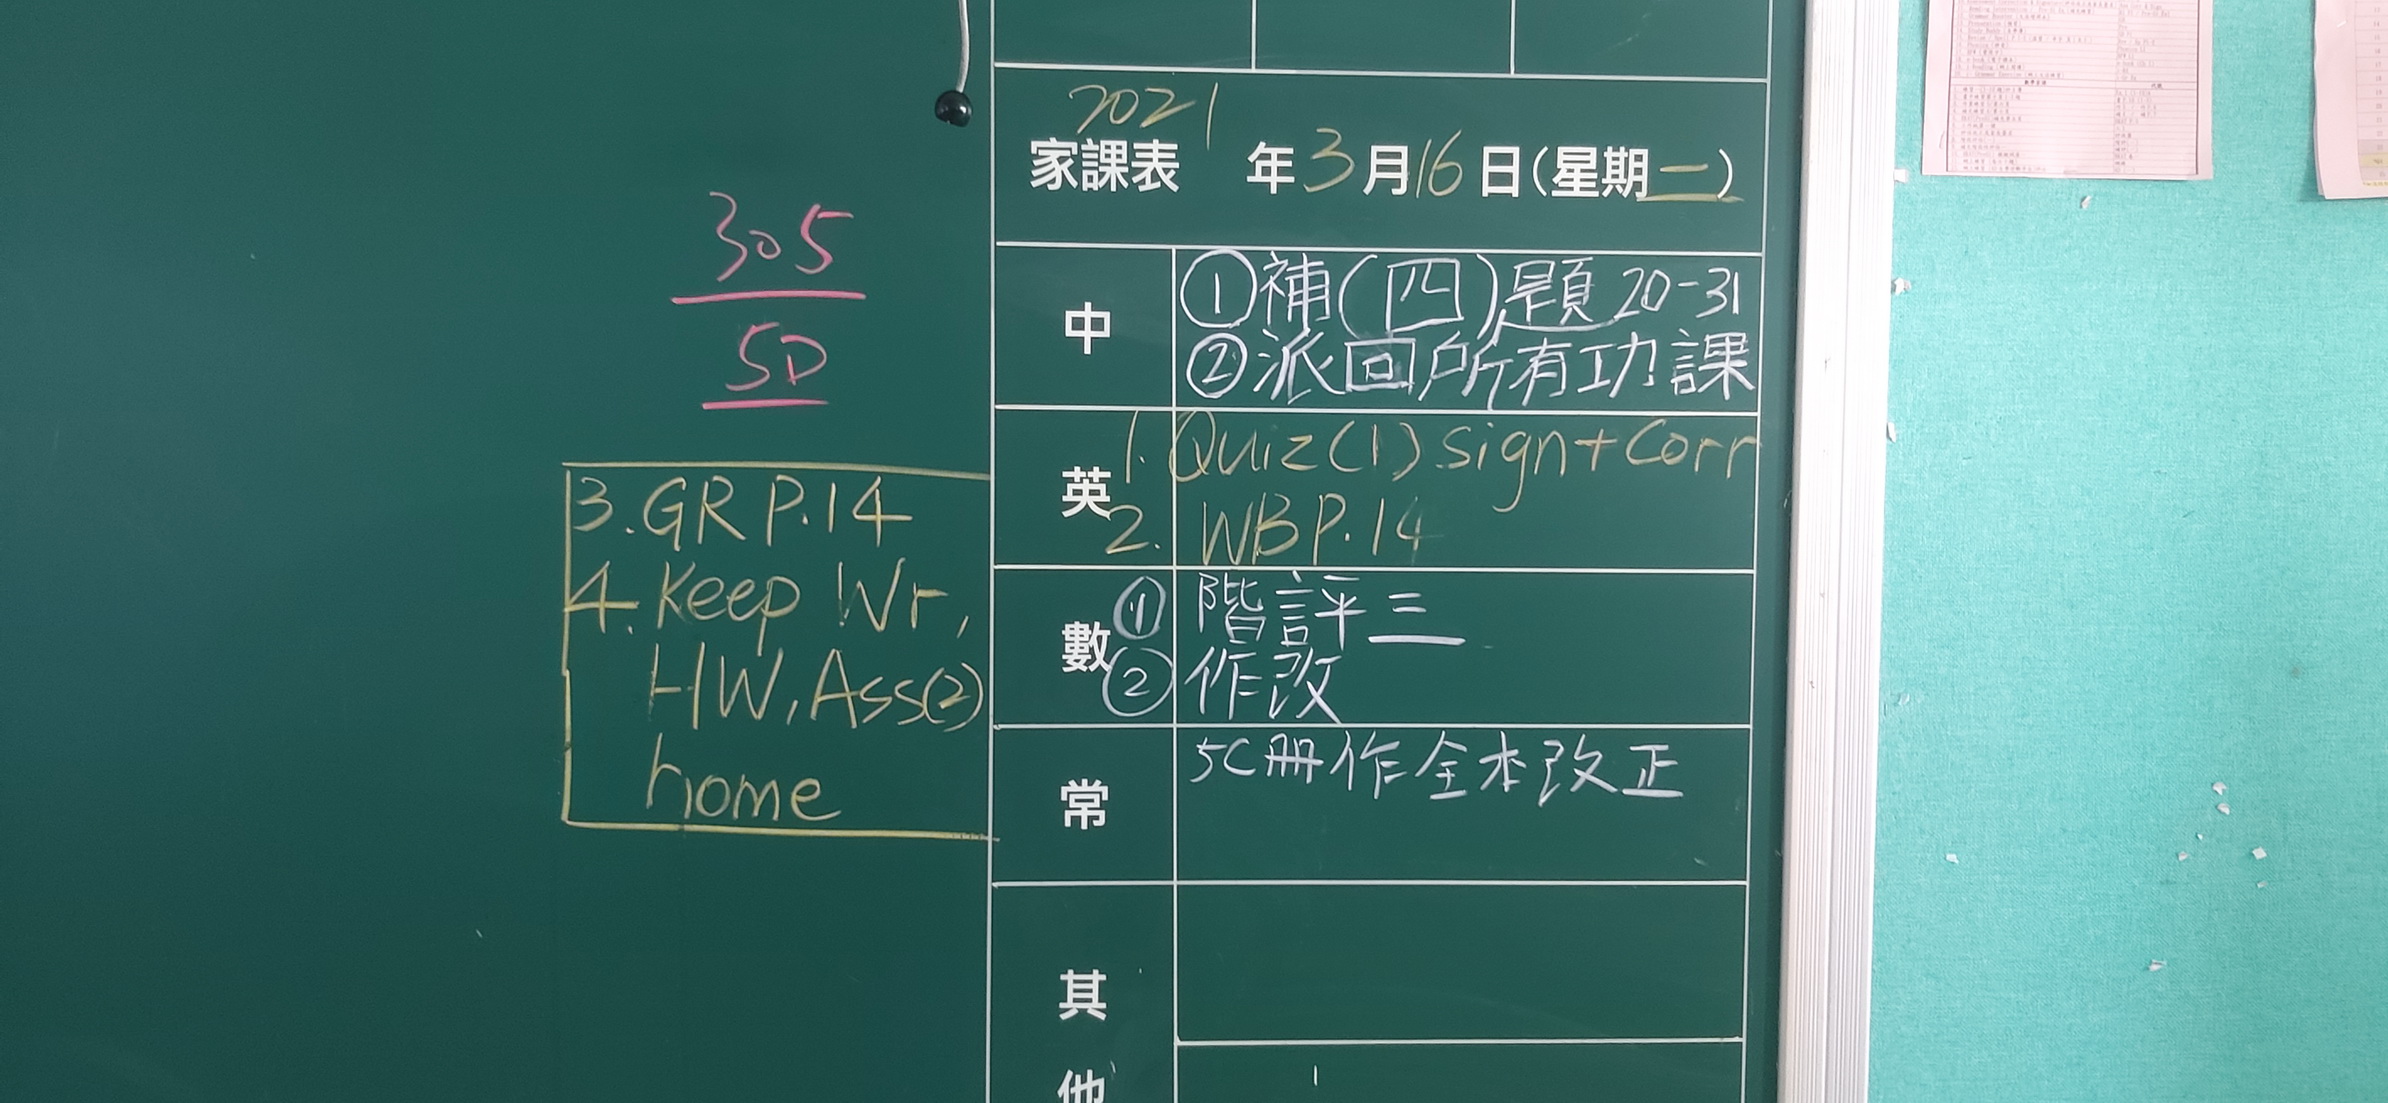 2021
家課表 年3月16日(星期二)
305
5D
中
①補(四)題20-31
②派回所有功課
英
1. Quiz(1) sign+Corr
2. WB P.14
3. GR P.14
4. Keep Wr,
HW, Ass(2)
home
數
① 階評三
② 作改
常
5C冊作全本改正
其
他